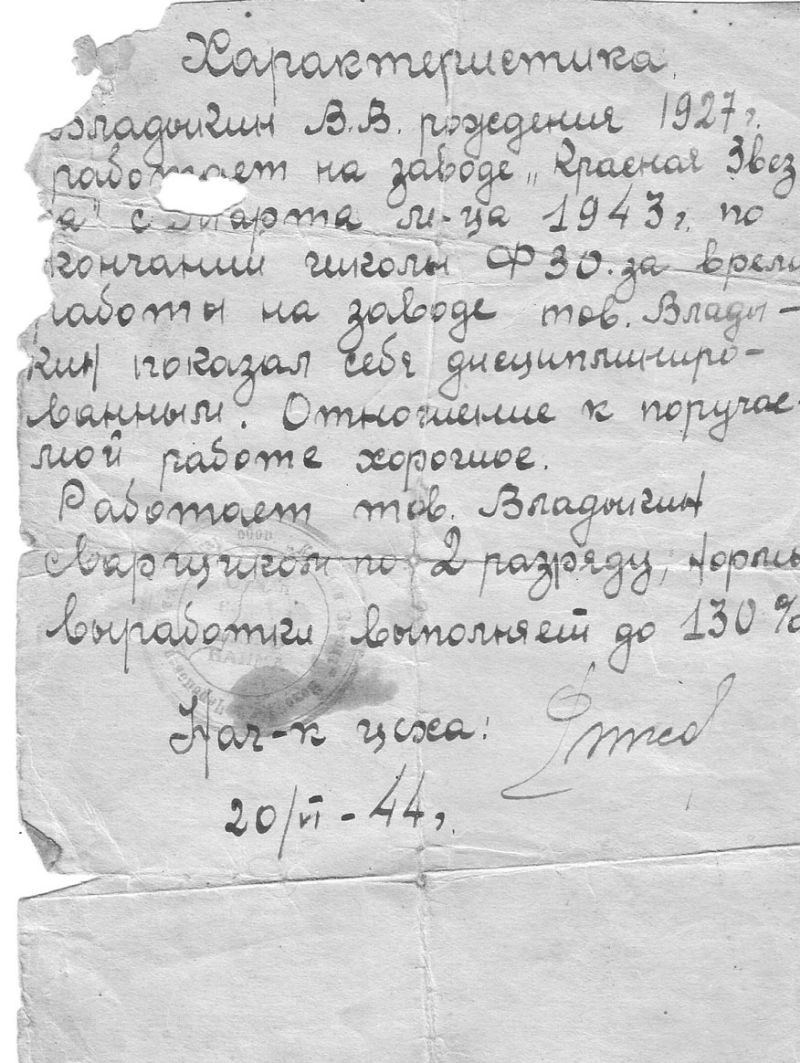 Характеристика.
Владыкин В.В. рождения 1927 г.
работает на заводе „Красная Звез
а" с Марта м-ца 1943 г. по
кончании школы ФЗО. за врем
работы на заводе тов. Влады-
кин показал себя дисциплиниро-
ванным. Отношение к поручае-
мой работе хорошое.
Работает тов. Владыкин
сварщиком по 2 разряду, нормы
выработки выполняет до 130%
Нач-к цеха:
20/VI - 44 г.